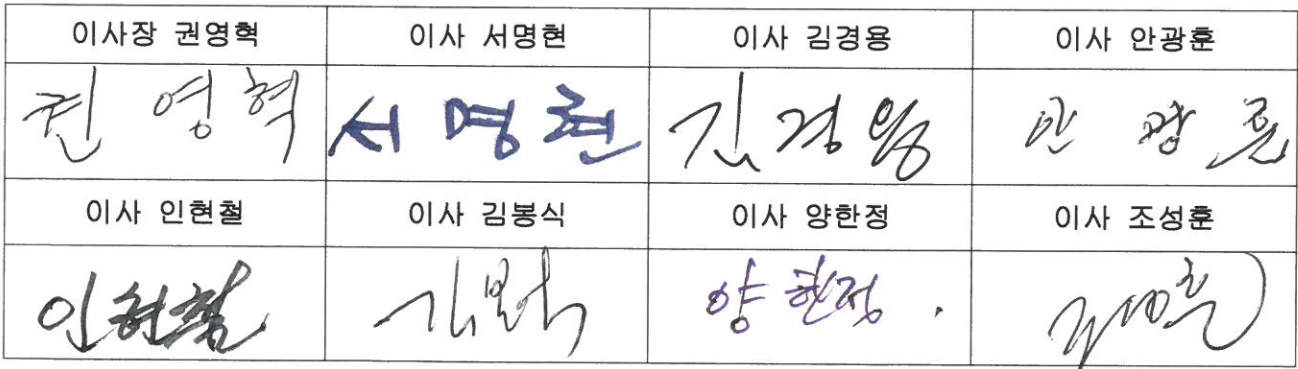 이사장 권영혁 이사 서명현 이사 김경용 이사 안광훈
권 영 혁 서 명 현 김 경 용 안 광 훈
이사 인현철 이사 김봉식 이사 양한정 이사 조성훈
인현철 김봉식 양한정 . 조성훈